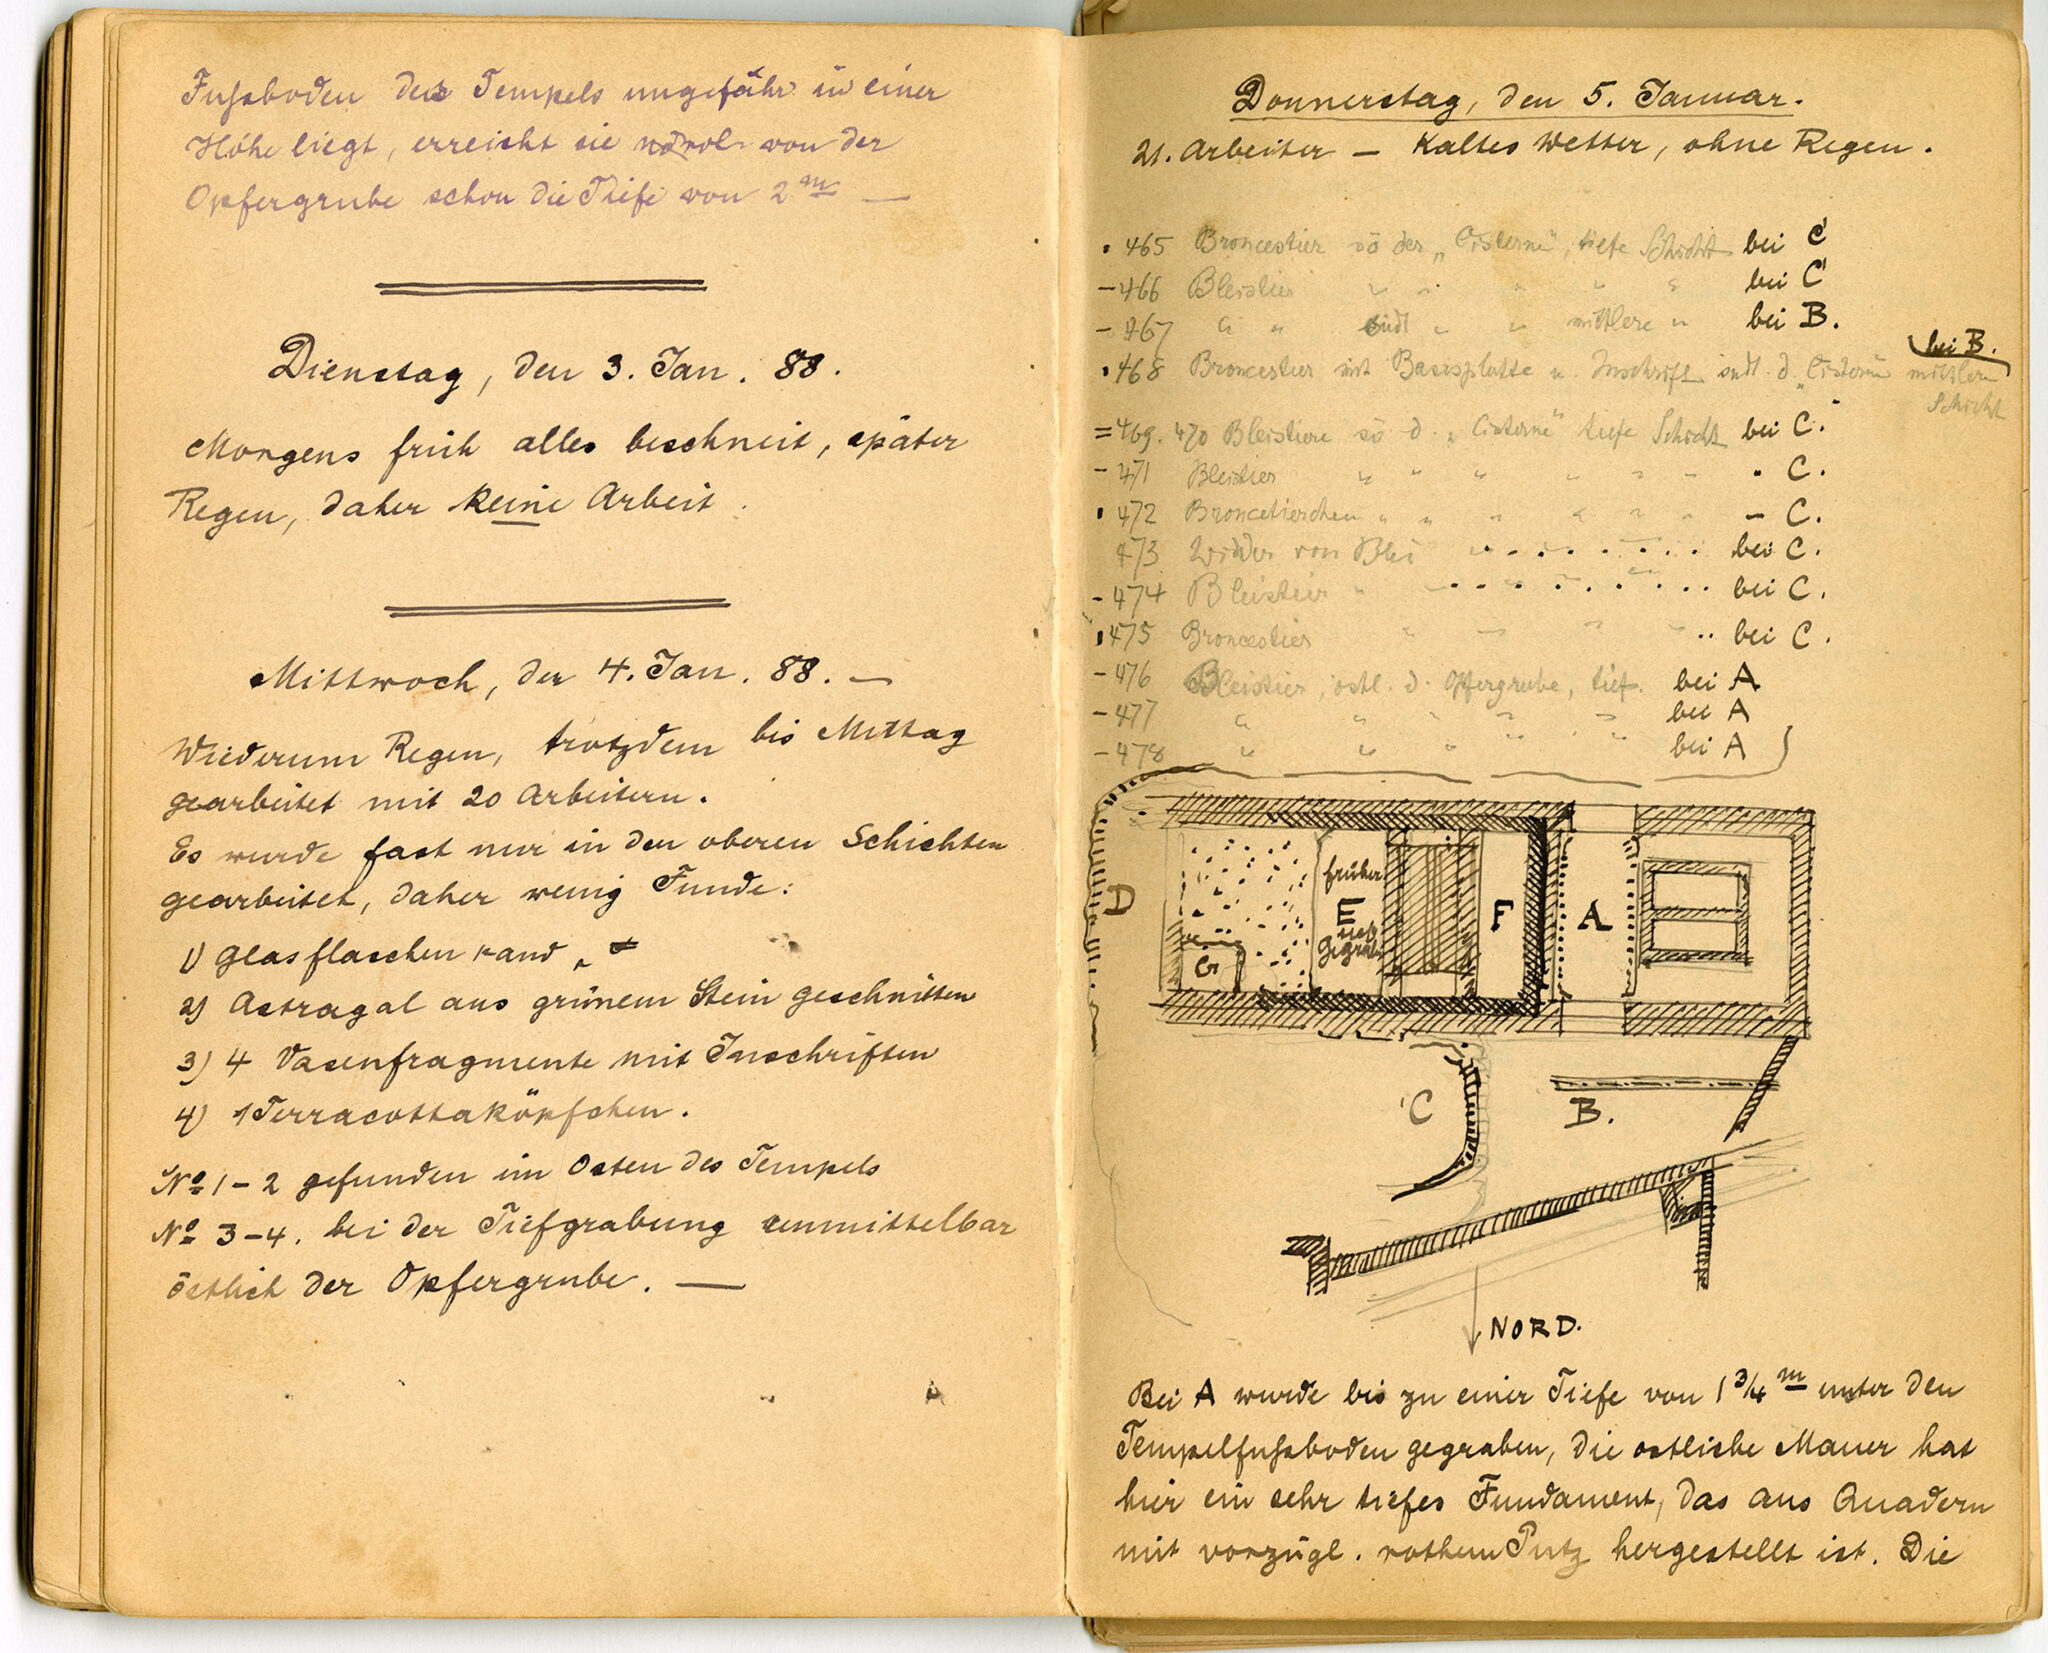 Fussboden des Tempels ungefähr in einer
Höhe liegt, erreicht sie nordöl. von der
Opfergrube schon die Tiefe von 2 m —
Dienstag, den 3. Jan. 88.
Morgens früh alles beschneit, später
Regen, daher keine Arbeit.
Mittwoch, der 4. Jan. 88. —
Wiederum Regen, trotzdem bis Mittag
gearbeitet mit 20 Arbeitern.
Es wurde fast nur in den oberen Schichten
gearbeitet, daher wenig Funde:
1) Glasflaschenrand
2) Astragal aus grünem Stein geschnitten
3) 4 Vasenfragmente mit Inschriften
4) 1 Terracottaköpfchen.
No 1–2 gefunden im Osten des Tempels
No 3–4. bei der Tiefgrabung unmittelbar
östlich der Opfergrube. —
Donnerstag, den 5. Januar.
21. Arbeiter — Kaltes Wetter, ohne Regen.
465 Broncestier sö der „Cisterne", tiefe Schicht bei C
– 466 Bleistier " " " " " bei C
– 467 " " südl " " mittlere " bei B.
bei B.
468 Broncestier mit Basisplatte u. Inschrift südl. d. „Cisterne" mittlere
Schicht
= 469. 470 Bleistiere sö d. „Cisterne" tiefe Schicht bei C.
– 471 Bleistier " " " " " " C.
472 Broncetierchen " " " " " " – C.
473 Widder von Blei " bei C.
– 474 Bleistier " bei C.
475 Broncestier " " " " bei C.
– 476 Bleistier, östl. d. Opfergrube, tief. bei A
– 477 " " " " " bei A
– 478 " " " " " bei A
D
früher
E
gegrab.
F
A
G
C
B.
NORD.
Bei A wurde bis zu einer Tiefe von 1 3/4 m unter den
Tempelfussboden gegraben, die östliche Mauer hat
hier ein sehr tiefes Fundament, das aus Quadern
mit vorzügl. rothem Putz hergestellt ist. Die